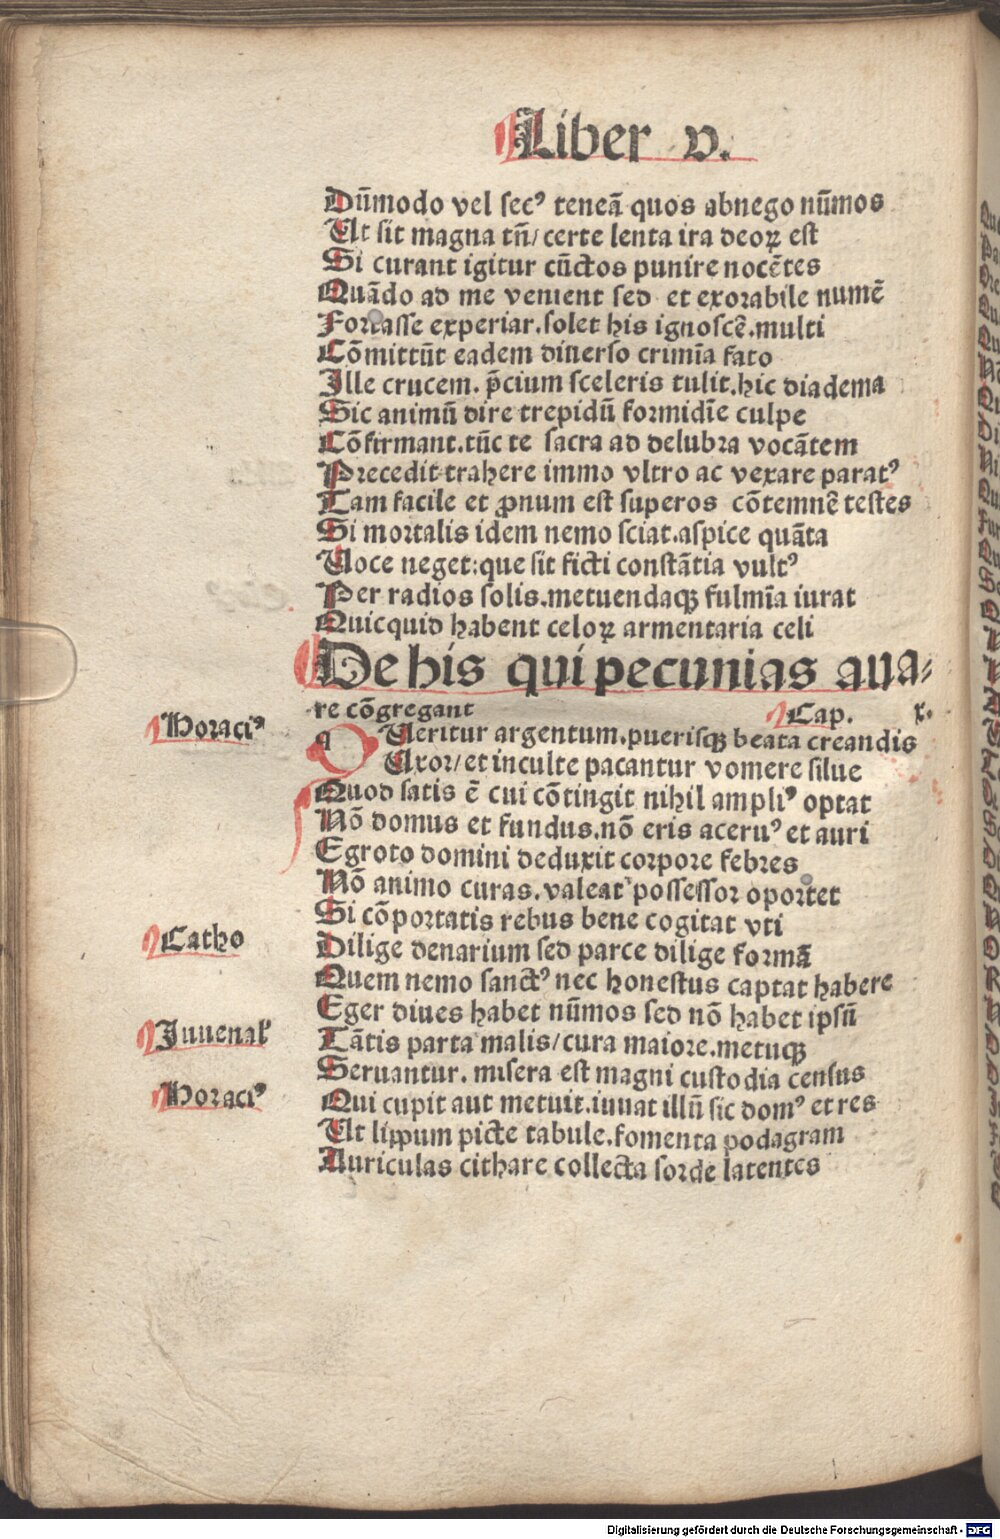 Liber v.
Dūmodo vel secꝰ teneā quos abnego nūmos
Ut sit magna tñ/certe lenta ira deoꝝ est
Si curant igitur cūctos punire nocētes
Quādo ad me venient sed et exorabile numē
Fortasse experiar.solet his ignoscē.multi
Cōmittūt eadem diuerso crimīa fato
Ille crucem. p̄cium sceleris tulit.hic diadema
Sic animū dire trepidū formidīe culpe
Cōfirmant.tūc te sacra ad delubra vocātem
Precedit trahere immo vltro ac vexare paratꝰ
Tam facile et ꝓnum est superos cōtemnē testes
Si mortalis idem nemo sciat.aspice quāta
Uoce neget:que sit ficti constātia vultꝰ
Per radios solis.metuendaqꝫ fulmīa iurat
Quicquid habent celoꝝ armentaria celi
De his qui pecunias aua⸗
re cōgregant Cap. x.
Horaciꝰ
q Ueritur argentum.puerisqꝫ beata creandis
Uxor/et inculte pacantur vomere silue
Quod satis ē cui cōtingit nihil ampliꝰ optat
Nō domus et fundus.nō eris aceruꝰ et auri
Egroto domini deduxit corpore febres
Nō animo curas.valeat possessor oportet
Si cōportatis rebus bene cogitat vti
Catho
Dilige denarium sed parce dilige formā
Quem nemo sanctꝰ nec honestus captat habere
Eger diues habet nūmos sed nō habet ipsū
Juuenal
Tātis parta malis/cura maiore.metuqꝫ
Seruantur. misera est magni custodia census
Horaciꝰ
Qui cupit aut metuit.iuuat illū sic domꝰ et res
Ut lippum picte tabule.fomenta podagram
Auriculas cithare collecta sorde latentes
Digitalisierung gefördert durch die Deutsche Forschungsgemeinschaft - DFG